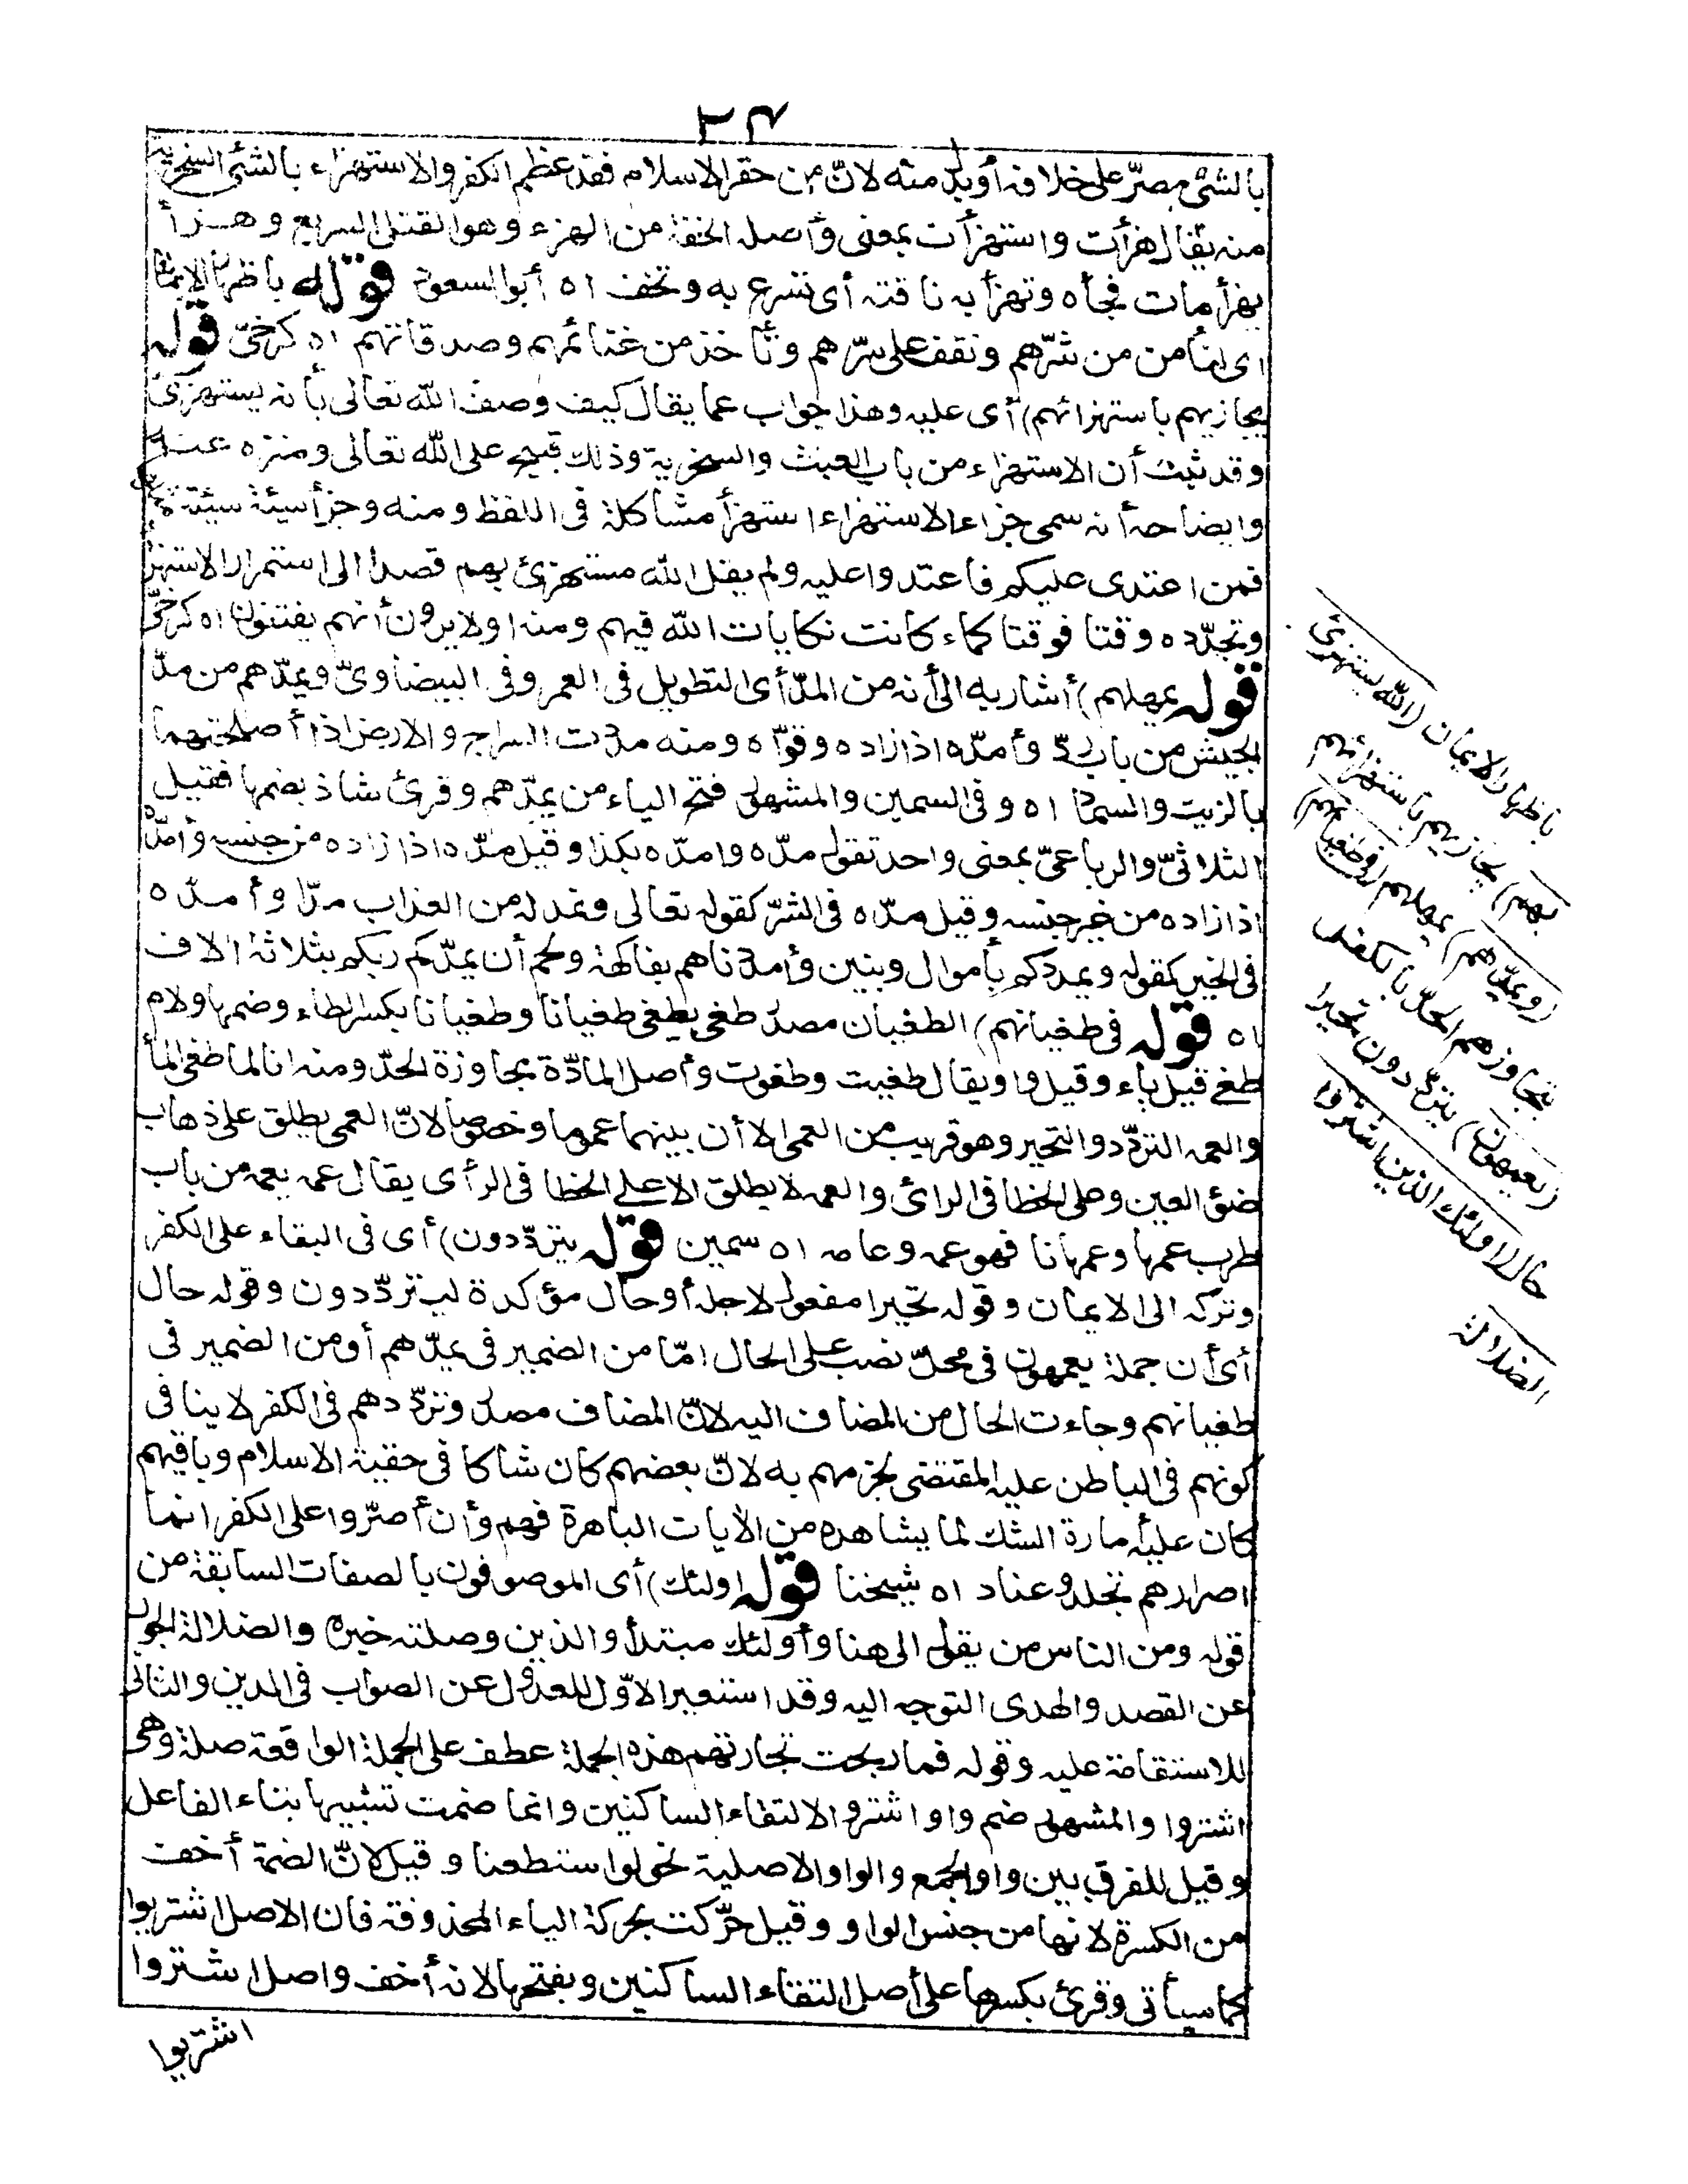 ٢٣
بالشئ مصرّ على خلافه أو بدل منه لانّ من حقر الاسلام فقد عظم الكفر والاستهزاء بالشئ السخرية
منه يقال هزأت واستهزأت بمعنى وأصله الخفة من الهزء وهو القتل السريع وهزأ
يهزأ مات فجأه وتهزأ به ناقته أى تسرع به وتخف اه أبو السعود قوله باظهار الايمان
اى لنأمن من شرّهم ونقف على سرّهم ونأخذ من غنائمهم وصدقاتهم اه كرخىّ قوله
يجازيهم باستهزائهم) أى عليه وهذا جواب عما يقال كيف وصف الله تعالى بأنه يستهزئ
وقد ثبت أن الاستهزاء من باب العبث والسخرية وذلك قبيح على الله تعالى ومنزه عنه
وايضاحه أنه سمى جزاء الاستهزاء استهزأ مشاكلة فى اللفظ ومنه وجزأ سيئة سيئة مثلها
فمن اعتدى عليكم فاعتدوا عليه ولم يقل الله مستهزئ بهم قصدا الى استمرار الاستهزا
وتجدّده وقتا فوقتا كماء كانت نكايات الله فيهم ومنه اولا يرون أنهم يفتنون اه كرخىّ
قوله يمهلهم) أشار به الى أنه من المدّ أى التطويل فى العمر وفى البيضاوىّ ويمدّهم من مدّ
الجيش من باب ردّ وأمدّه اذا زاده وقوّاه ومنه مددت السراج والارض اذا أصلحتهما
بالزيت والسماد اه وفى السمين والمشهور فتح الياء من يمدّهم وقرئ شاذ بضمها فقيل
الثلاثىّ والرباعىّ بمعنى واحد تقول مدّه وامدّه بكذا وقيل مدّه اذا زاده من جنسه وأمدّه
اذا زاده من غير جنسه وقيل مدّه فى الشرّ كقوله تعالى ونمد له من العذاب مدّا وأمدّه
فى الخير كقوله ويمددكم بأموال وبنين وأمددناهم بفاكهة ولحم أن يمدّكم ربكم بثلاثة الاف
اه قوله فى طغيانهم) الطغيان مصدر طغى يطغى طغيانا وطغيانا بكسر الطاء وضمها ولام
طغى قيل ياء وقيل واو يقال طغيت وطغوت وأصل المادّة مجاوزة الحدّ ومنه انا لما طغى الماْ
والعمه التردّد والتحير وهو قريب من العمى الا أن بينهما عموما وخصوصا لانّ العمى يطلق على ذهاب
ضوْ العين وعلى الخطا فى الرائ والعمه لا يطلق الا على الخطا فى الرأى يقال عمه يعمه من باب
طرب عمها وعمهانا فهو عمه وعامه اه سمين قوله يتردّدون) أى فى البقاء على الكفر
وتركه الى الايمان وقوله تحيرا مفعول لاجله أو حال مؤكدة ليتردّدون وقوله حال
أى أن جملة يعمهون فى محلّ نصب على الحال امّا من الضمير فى يمدّهم أو من الضمير فى
طغيانهم وجاءت الحال من المضاف اليه لانّ المضاف مصدر وتردّدهم فى الكفر لا ينافى
كونهم فى الباطن عليه المقتضى لجزمهم به لانّ بعضهم كان شاكا فى حقية الاسلام وباقيهم
كان عليه أمارة الشك لما يشاهده من الآيات الباهرة فهم وأن أصرّوا على الكفر انما
اصرارهم تجلد وعناد اه شيخنا قوله اولئك) أى الموصوفون بالصفات السابقة من
قوله ومن الناس من يقول الى هنا وأولئك مبتدأ والذين وصلته خبره والضلالة الجور
عن القصد والهدى التوجه اليه وقد استعير الاوّل للعدول عن الصواب فى الدين والثانى
للاستقامة عليه وقوله فما ربحت تجارتهم هذه الجملة عطف على الجملة الواقعة صلة وهى
اشتروا والمشهور ضم واو اشتروا لالتقاء الساكنين وانما ضمت تشبيها بتاء الفاعل
وقيل للفرق بين واو الجمع والواو الاصلية نحو لو استطعنا وقيل لانّ الضمة أخف
من الكسرة لانها من جنس الواو وقيل حرّكت بحركة الياء المحذوفة فان الاصل اشتريوا
كما سيأتى وقرئ بكسرها على أصل التقاء الساكنين وبفتحها لانه أخف واصل اشتروا
اشتريوا
باظهار الايمان (الله يستهزئ
بهم) يجازيهم باستهزائهم
(ويمدّهم) يمهلهم (فى طغيانهم)
تجاوزهم الحدّ بالكفر
(يعمهون) يتردّدون تحيرا
حال (اولئك الذين اشتروا
الضلالة